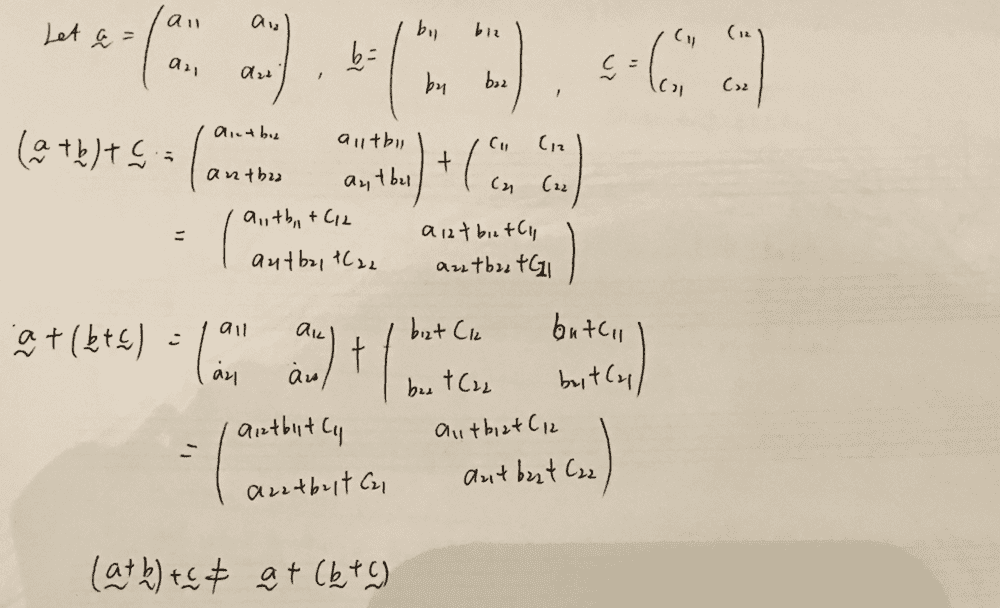 Let a = ( a11 a12 ; a21 a22 ) , b = ( b11 b12 ; b21 b22 ) , c = ( c11 c12 ; c21 c22 )
(a + b) + c = ( a12+b12 a11+b11 ; a22+b22 a21+b21 ) + ( c11 c12 ; c21 c22 )
= ( a11+b11+c12 a12+b12+c11 ; a21+b21+c22 a22+b22+c21 )
a + (b + c) = ( a11 a12 ; a21 a22 ) + ( b12+c12 b11+c11 ; b22+c22 b21+c21 )
= ( a12+b11+c11 a11+b12+c12 ; a22+b21+c21 a21+b22+c22 )
(a+b)+c ≠ a + (b+c)